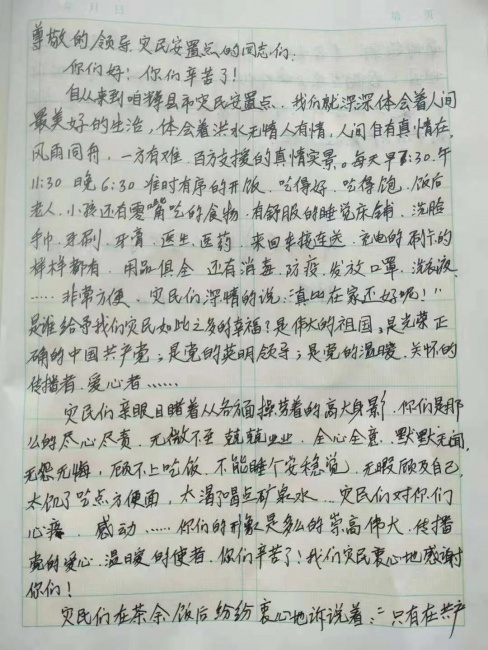 尊敬的领导灾民安置点的同志们:
你们好!你们辛苦了!
自从来到咱辉县市灾民安置点,我们就深深体会着人间
最美好的生活,体会着洪水无情人有情,人间自有真情在,
风雨同舟,一方有难,百方支援的真情实景。每天早7:30.午
11:30 晚6:30 准时有序的开饭,吃得好,吃得饱,饭后
老人,小孩还有零嘴吃的食物,有舒服的睡觉床铺,洗脸
手巾,牙刷,牙膏,医生,医药,来回来接连送,充电的
样样都有,用品俱全 还有消毒,防疫,发放口罩,洗衣液
……非常方便、灾民们深情的说:"真比在家还好呢!"
是谁给予我们灾民如此之多的幸福?是伟大的祖国;是光荣正
确的中国共产党;是党的英明领导;是党的温暖、关怀的
传播者,爱心者……
灾民们亲眼目睹着从各方面操劳着的高大身影,你们是那
么的尽心尽责,无微不至,兢兢业业,全心全意,默默无闻,
无怨无悔,顾不上吃饭,不能睡个安稳觉,无暇顾及自己,
太饥了吃点方便面,太渴了喝点矿泉水……灾民们对你们
心疼,感动……你们的形象是多么的崇高伟大,传播
党的爱心,温暖的使者,你们辛苦了!我们灾民衷心地感谢
你们!
灾民们在茶余饭后纷纷衷心地诉说着:"只有在共产